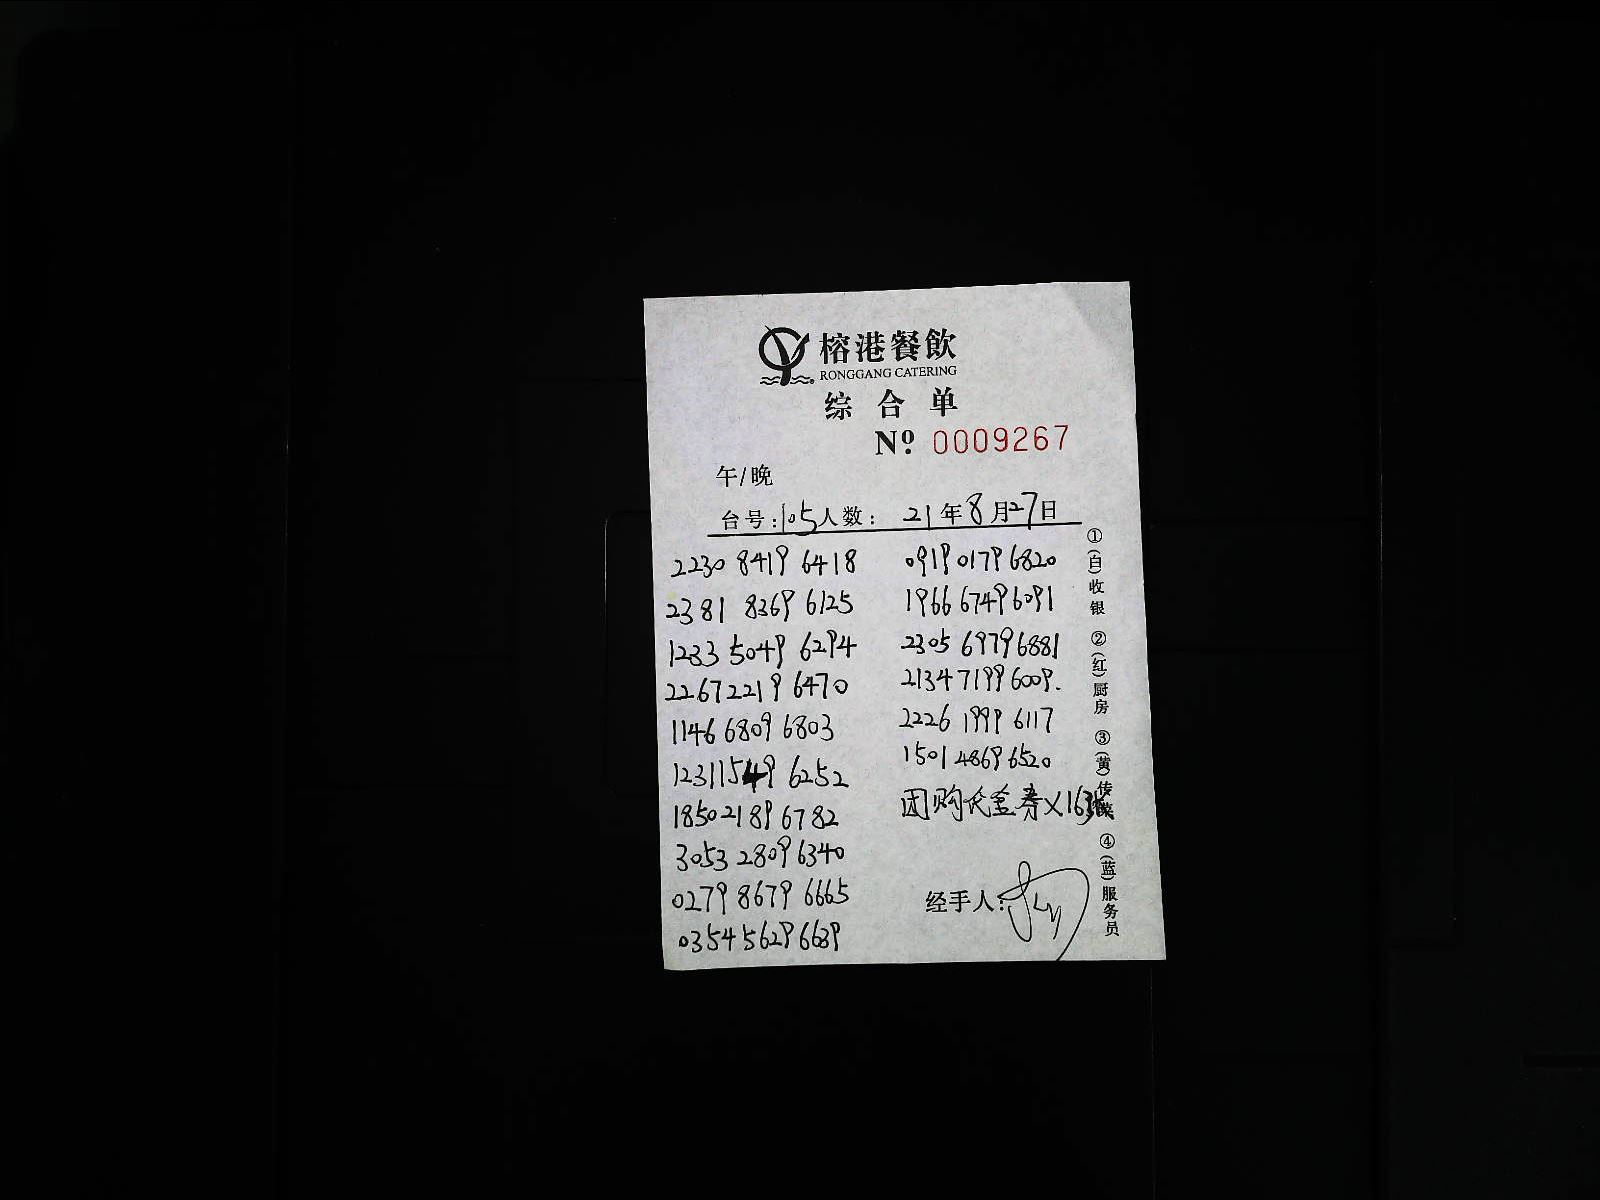 榕港餐飲
RONGGANG CATERING
综合单
Nº 0009267
午/晚
台号:105人数: 21年8月27日
2230 8419 6418
2381 8369 6125
1233 5049 6294
2267 2219 6470
1146 6809 6803
1231 1549 6252
1850 2189 6782
3053 2809 6340
0279 8679 6665
0354 5629 6639
0919 0179 6820
1966 6749 6091
2305 6979 6881
2134 7199 6009.
2226 1999 6117
1501 4869 6520
团购代金券×16张
经手人:
①(白)收银 ②(红)厨房 ③(黄)传菜 ④(蓝)服务员